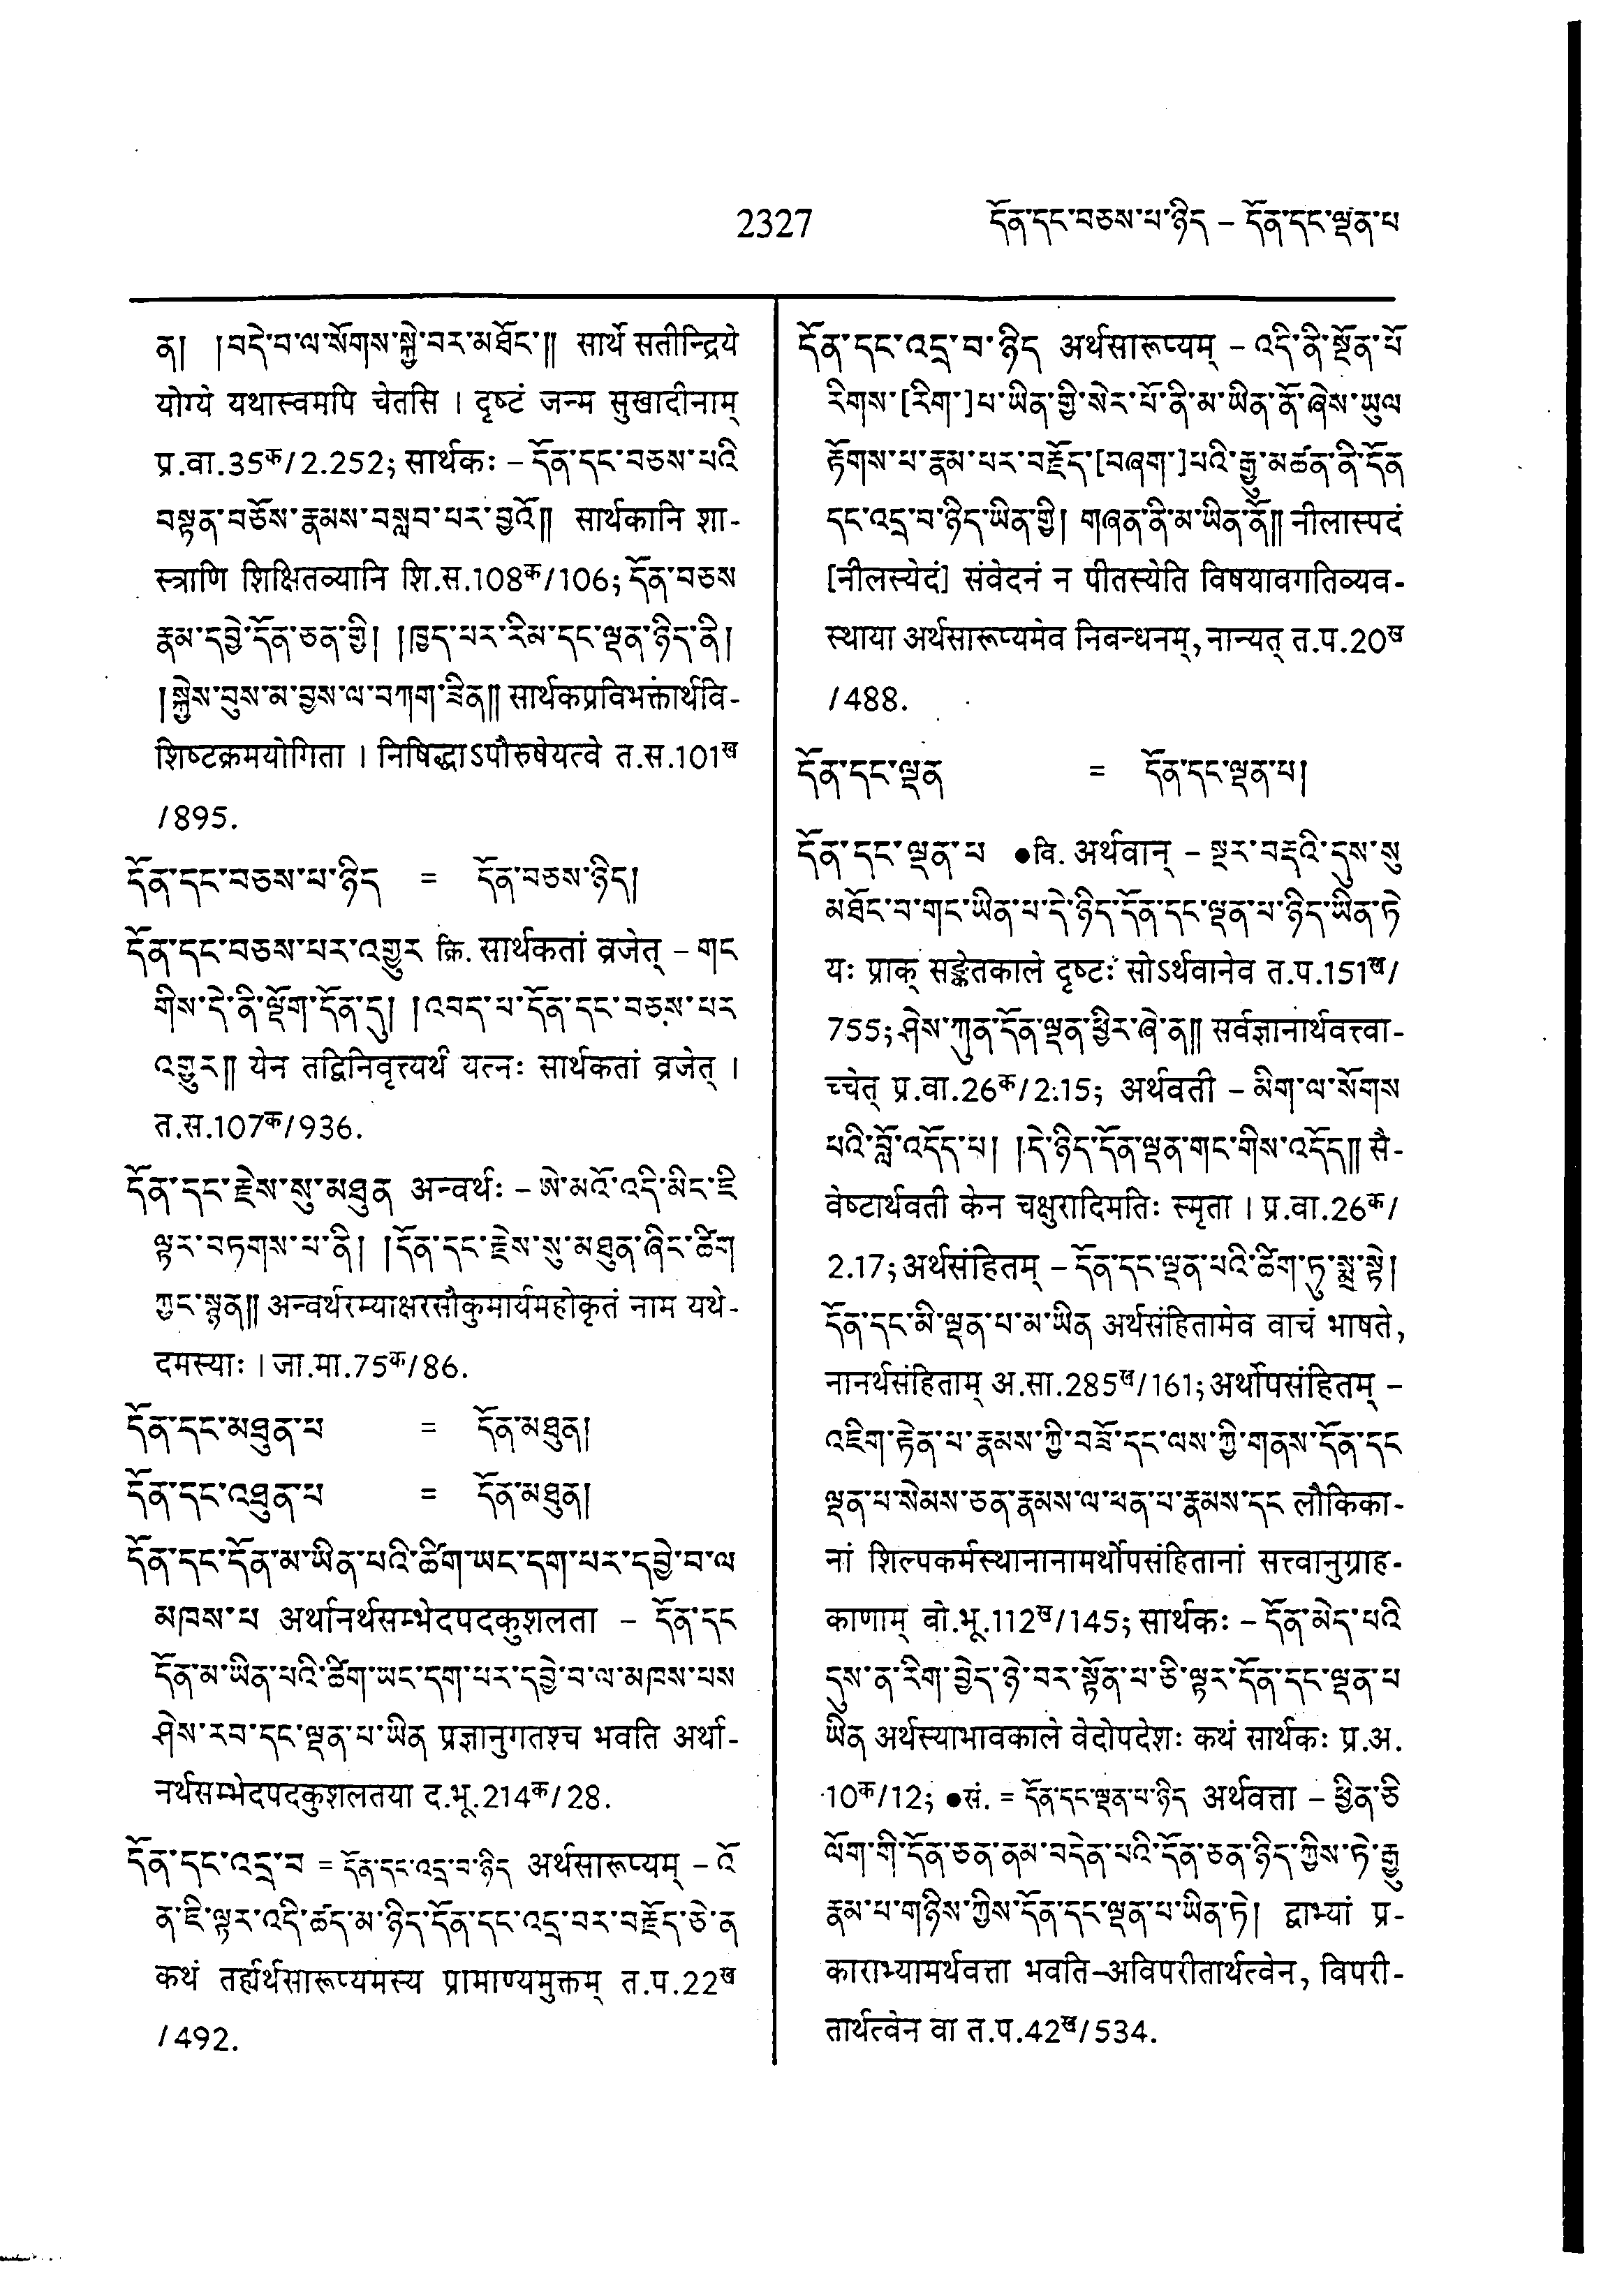 2327
དོན་དང་བཅས་པ་ཉིད – དོན་དང་ལྡན་པ
ན། །བདེ་བ་ལ་སོགས་སྐྱེ་བར་མཐོང་།། सार्थे सतीन्द्रिये
योग्ये यथास्वमपि चेतसि । दृष्टं जन्म सुखादीनाम्
प्र.वा.35क/2.252; सार्थकः – དོན་དང་བཅས་པའི
བསྟན་བཅོས་རྣམས་བསླབ་པར་བྱའོ།། सार्थकानि शा-
स्त्राणि शिक्षितव्यानि शि.स.108क/106; དོན་བཅས
རྣམ་དབྱེ་དོན་ཅན་གྱི། །ཁྱད་པར་རིམ་དང་ལྡན་ཉིད་ནི།
།སྐྱེས་བུས་མ་བྱས་ལ་བཀག་ཟིན།། सार्थकप्रविभक्तार्थवि-
शिष्टक्रमयोगिता । निषिद्धाऽपौरुषेयत्वे त.स.101ख
/895.
དོན་དང་བཅས་པ་ཉིད = དོན་བཅས་ཉིད།
དོན་དང་བཅས་པར་འགྱུར क्रि. सार्थकतां व्रजेत् – གང
གིས་དེ་ནི་ལྡོག་དོན་དུ། །འབད་པ་དོན་དང་བཅས་པར
འགྱུར།། येन तद्विनिवृत्त्यर्थं यत्नः सार्थकतां व्रजेत् ।
त.स.107क/936.
དོན་དང་རྗེས་སུ་མཐུན अन्वर्थः – ཨེ་མའོ་འདི་མིང་ཇི
ལྟར་བཏགས་པ་ནི། །དོན་དང་རྗེས་སུ་མཐུན་ཞིང་ཚིག
ཀྱང་སྙན།། अन्वर्थरम्याक्षरसौकुमार्यमहोकृतं नाम यथे-
दमस्याः । जा.मा.75क/86.
དོན་དང་མཐུན་པ = དོན་མཐུན།
དོན་དང་འཐུན་པ = དོན་མཐུན།
དོན་དང་དོན་མ་ཡིན་པའི་ཚིག་ཡང་དག་པར་དབྱེ་བ་ལ
མཁས་པ अर्थानर्थसम्भेदपदकुशलता – དོན་དང
དོན་མ་ཡིན་པའི་ཚིག་ཡང་དག་པར་དབྱེ་བ་ལ་མཁས་པས
ཤེས་རབ་དང་ལྡན་པ་ཡིན प्रज्ञानुगतश्च भवति अर्था-
नर्थसम्भेदपदकुशलतया द.भू.214क/28.
དོན་དང་འདྲ་བ = དོན་དང་འདྲ་བ་ཉིད अर्थसारूप्यम् – འོ
ན་ཇི་ལྟར་འདི་ཚད་མ་ཉིད་དོན་དང་འདྲ་བར་བརྗོད་ཅེ་ན
कथं तर्ह्यर्थसारूप्यमस्य प्रामाण्यमुक्तम् त.प.22ख
/492.
དོན་དང་འདྲ་བ་ཉིད अर्थसारूप्यम् – འདི་ནི་སྔོན་པོ
རིགས་[རིག་]པ་ཡིན་གྱི་སེར་པོ་ནི་མ་ཡིན་ནོ་ཞེས་ཡུལ
རྟོགས་པ་རྣམ་པར་བརྗོད་[བཞག་]པའི་རྒྱུ་མཚན་ནི་དོན
དང་འདྲ་བ་ཉིད་ཡིན་གྱི། གཞན་ནི་མ་ཡིན་ནོ།། नीलास्पदं
[नीलस्येदं] संवेदनं न पीतस्येति विषयावगतिव्यव-
स्थाया अर्थसारूप्यमेव निबन्धनम्, नान्यत् त.प.20ख
/488.
དོན་དང་ལྡན = དོན་དང་ལྡན་པ།
དོན་དང་ལྡན་པ ●वि. अर्थवान् – སྔར་བརྡའི་དུས་སུ
མཐོང་བ་གང་ཡིན་པ་དེ་ཉིད་དོན་དང་ལྡན་པ་ཉིད་ཡིན་ཏེ
यः प्राक् सङ्केतकाले दृष्टः सोऽर्थवानेव त.प.151ख/
755; ཤེས་ཀུན་དོན་ལྡན་ཕྱིར་ཞེ་ན།། सर्वज्ञानार्थवत्त्वा-
च्चेत् प्र.वा.26क/2.15; अर्थवती – མིག་ལ་སོགས
པའི་བློ་འདོད་པ། །དེ་ཉིད་དོན་ལྡན་གང་གིས་འདོད།། सै-
वेष्टार्थवती केन चक्षुरादिमतिः स्मृता । प्र.वा.26क/
2.17; अर्थसंहितम् – དོན་དང་ལྡན་པའི་ཚིག་ཏུ་སྨྲ་སྟེ།
དོན་དང་མི་ལྡན་པ་མ་ཡིན अर्थसंहितामेव वाचं भाषते,
नानर्थसंहिताम् अ.सा.285ख/161; अर्थोपसंहितम् –
འཇིག་རྟེན་པ་རྣམས་ཀྱི་བཟོ་དང་ལས་ཀྱི་གནས་དོན་དང
ལྡན་པ་སེམས་ཅན་རྣམས་ལ་ཕན་པ་རྣམས་དང लौकिका-
नां शिल्पकर्मस्थानानामर्थोपसंहितानां सत्त्वानुग्राह-
काणाम् बो.भू.112ख/145; सार्थकः – དོན་མེད་པའི
དུས་ན་རིག་བྱེད་ཉེ་བར་སྟོན་པ་ཅི་ལྟར་དོན་དང་ལྡན་པ
ཡིན अर्थस्याभावकाले वेदोपदेशः कथं सार्थकः प्र.अ.
10क/12; ●सं. = དོན་དང་ལྡན་པ་ཉིད अर्थवत्ता – ཕྱིན་ཅི
ལོག་གི་དོན་ཅན་ནམ་བདེན་པའི་དོན་ཅན་ཉིད་ཀྱིས་ཏེ་རྒྱུ
རྣམ་པ་གཉིས་ཀྱིས་དོན་དང་ལྡན་པ་ཡིན་ཏེ། द्वाभ्यां प्र-
काराभ्यामर्थवत्ता भवति–अविपरीतार्थत्वेन, विपरी-
तार्थत्वेन वा त.प.42ख/534.